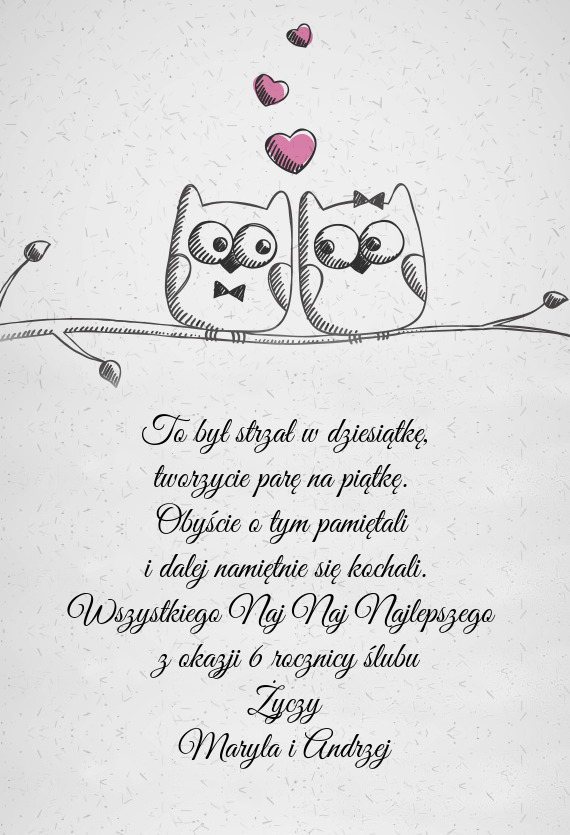 To był strzał w dziesiątkę,
tworzycie parę na piątkę.
Obyście o tym pamiętali
i dalej namiętnie się kochali.
Wszystkiego Naj Naj Najlepszego
z okazji 6 rocznicy ślubu
Życzy
Maryla i Andrzej